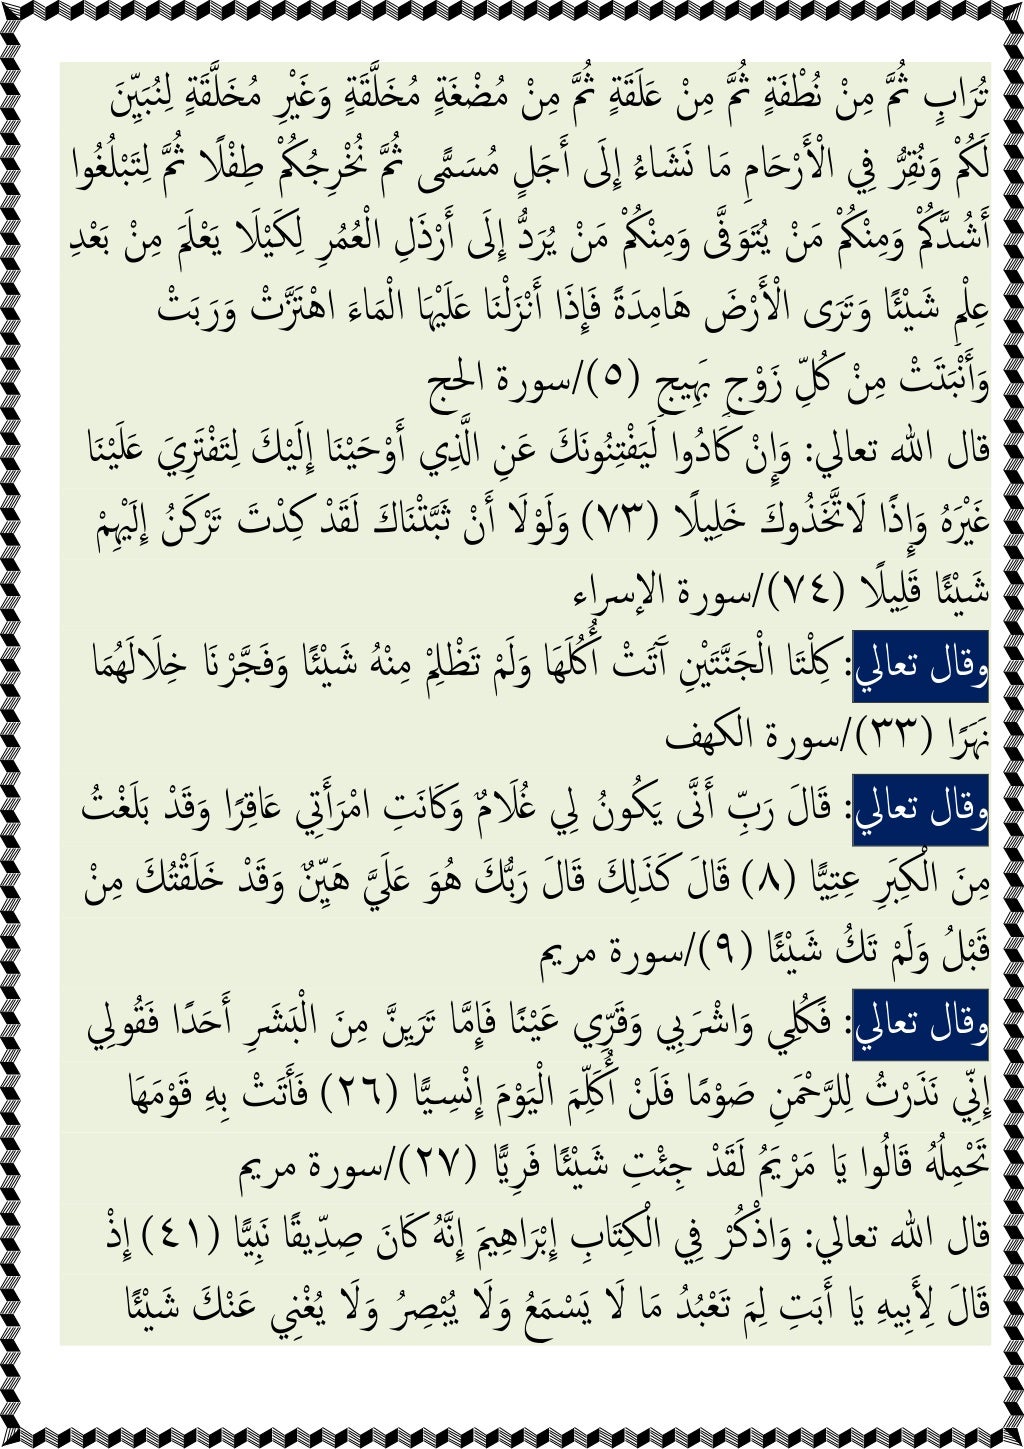 تُرَابٍ ثُمَّ مِنْ نُطْفَةٍ ثُمَّ مِنْ عَلَقَةٍ ثُمَّ مِنْ مُضْغَةٍ مُخَلَّقَةٍ وَغَيْرِ مُخَلَّقَةٍ لِنُبَيِّنَ
لَكُمْ وَنُقِرُّ فِي الْأَرْحَامِ مَا نَشَاءُ إِلَى أَجَلٍ مُسَمًّى ثُمَّ نُخْرِجُكُمْ طِفْلًا ثُمَّ لِتَبْلُغُوا
أَشُدَّكُمْ وَمِنْكُمْ مَنْ يُتَوَفَّى وَمِنْكُمْ مَنْ يُرَدُّ إِلَى أَرْذَلِ الْعُمُرِ لِكَيْلَا يَعْلَمَ مِنْ بَعْدِ
عِلْمٍ شَيْئًا وَتَرَى الْأَرْضَ هَامِدَةً فَإِذَا أَنْزَلْنَا عَلَيْهَا الْمَاءَ اهْتَزَّتْ وَرَبَتْ
وَأَنْبَتَتْ مِنْ كُلِّ زَوْجٍ بَهِيجٍ (٥)/سورة الحج
قال الله تعالي: وَإِنْ كَادُوا لَيَفْتِنُونَكَ عَنِ الَّذِي أَوْحَيْنَا إِلَيْكَ لِتَفْتَرِيَ عَلَيْنَا
غَيْرَهُ وَإِذًا لَاتَّخَذُوكَ خَلِيلًا (٧٣) وَلَوْلَا أَنْ ثَبَّتْنَاكَ لَقَدْ كِدْتَ تَرْكَنُ إِلَيْهِمْ
شَيْئًا قَلِيلًا (٧٤)/سورة الإسراء
وقال تعالي: كِلْتَا الْجَنَّتَيْنِ آَتَتْ أُكُلَهَا وَلَمْ تَظْلِمْ مِنْهُ شَيْئًا وَفَجَّرْنَا خِلَالَهُمَا
نَهَرًا (٣٣)/سورة الكهف
وقال تعالي: قَالَ رَبِّ أَنَّى يَكُونُ لِي غُلَامٌ وَكَانَتِ امْرَأَتِي عَاقِرًا وَقَدْ بَلَغْتُ
مِنَ الْكِبَرِ عِتِيًّا (٨) قَالَ كَذَلِكَ قَالَ رَبُّكَ هُوَ عَلَيَّ هَيِّنٌ وَقَدْ خَلَقْتُكَ مِنْ
قَبْلُ وَلَمْ تَكُ شَيْئًا (٩)/سورة مريم
وقال تعالي: فَكُلِي وَاشْرَبِي وَقَرِّي عَيْنًا فَإِمَّا تَرَيِنَّ مِنَ الْبَشَرِ أَحَدًا فَقُولِي
إِنِّي نَذَرْتُ لِلرَّحْمَنِ صَوْمًا فَلَنْ أُكَلِّمَ الْيَوْمَ إِنْسِيًّا (٢٦) فَأَتَتْ بِهِ قَوْمَهَا
تَحْمِلُهُ قَالُوا يَا مَرْيَمُ لَقَدْ جِئْتِ شَيْئًا فَرِيًّا (٢٧)/سورة مريم
قال الله تعالي: وَاذْكُرْ فِي الْكِتَابِ إِبْرَاهِيمَ إِنَّهُ كَانَ صِدِّيقًا نَبِيًّا (٤١) إِذْ
قَالَ لِأَبِيهِ يَا أَبَتِ لِمَ تَعْبُدُ مَا لَا يَسْمَعُ وَلَا يُبْصِرُ وَلَا يُغْنِي عَنْكَ شَيْئًا